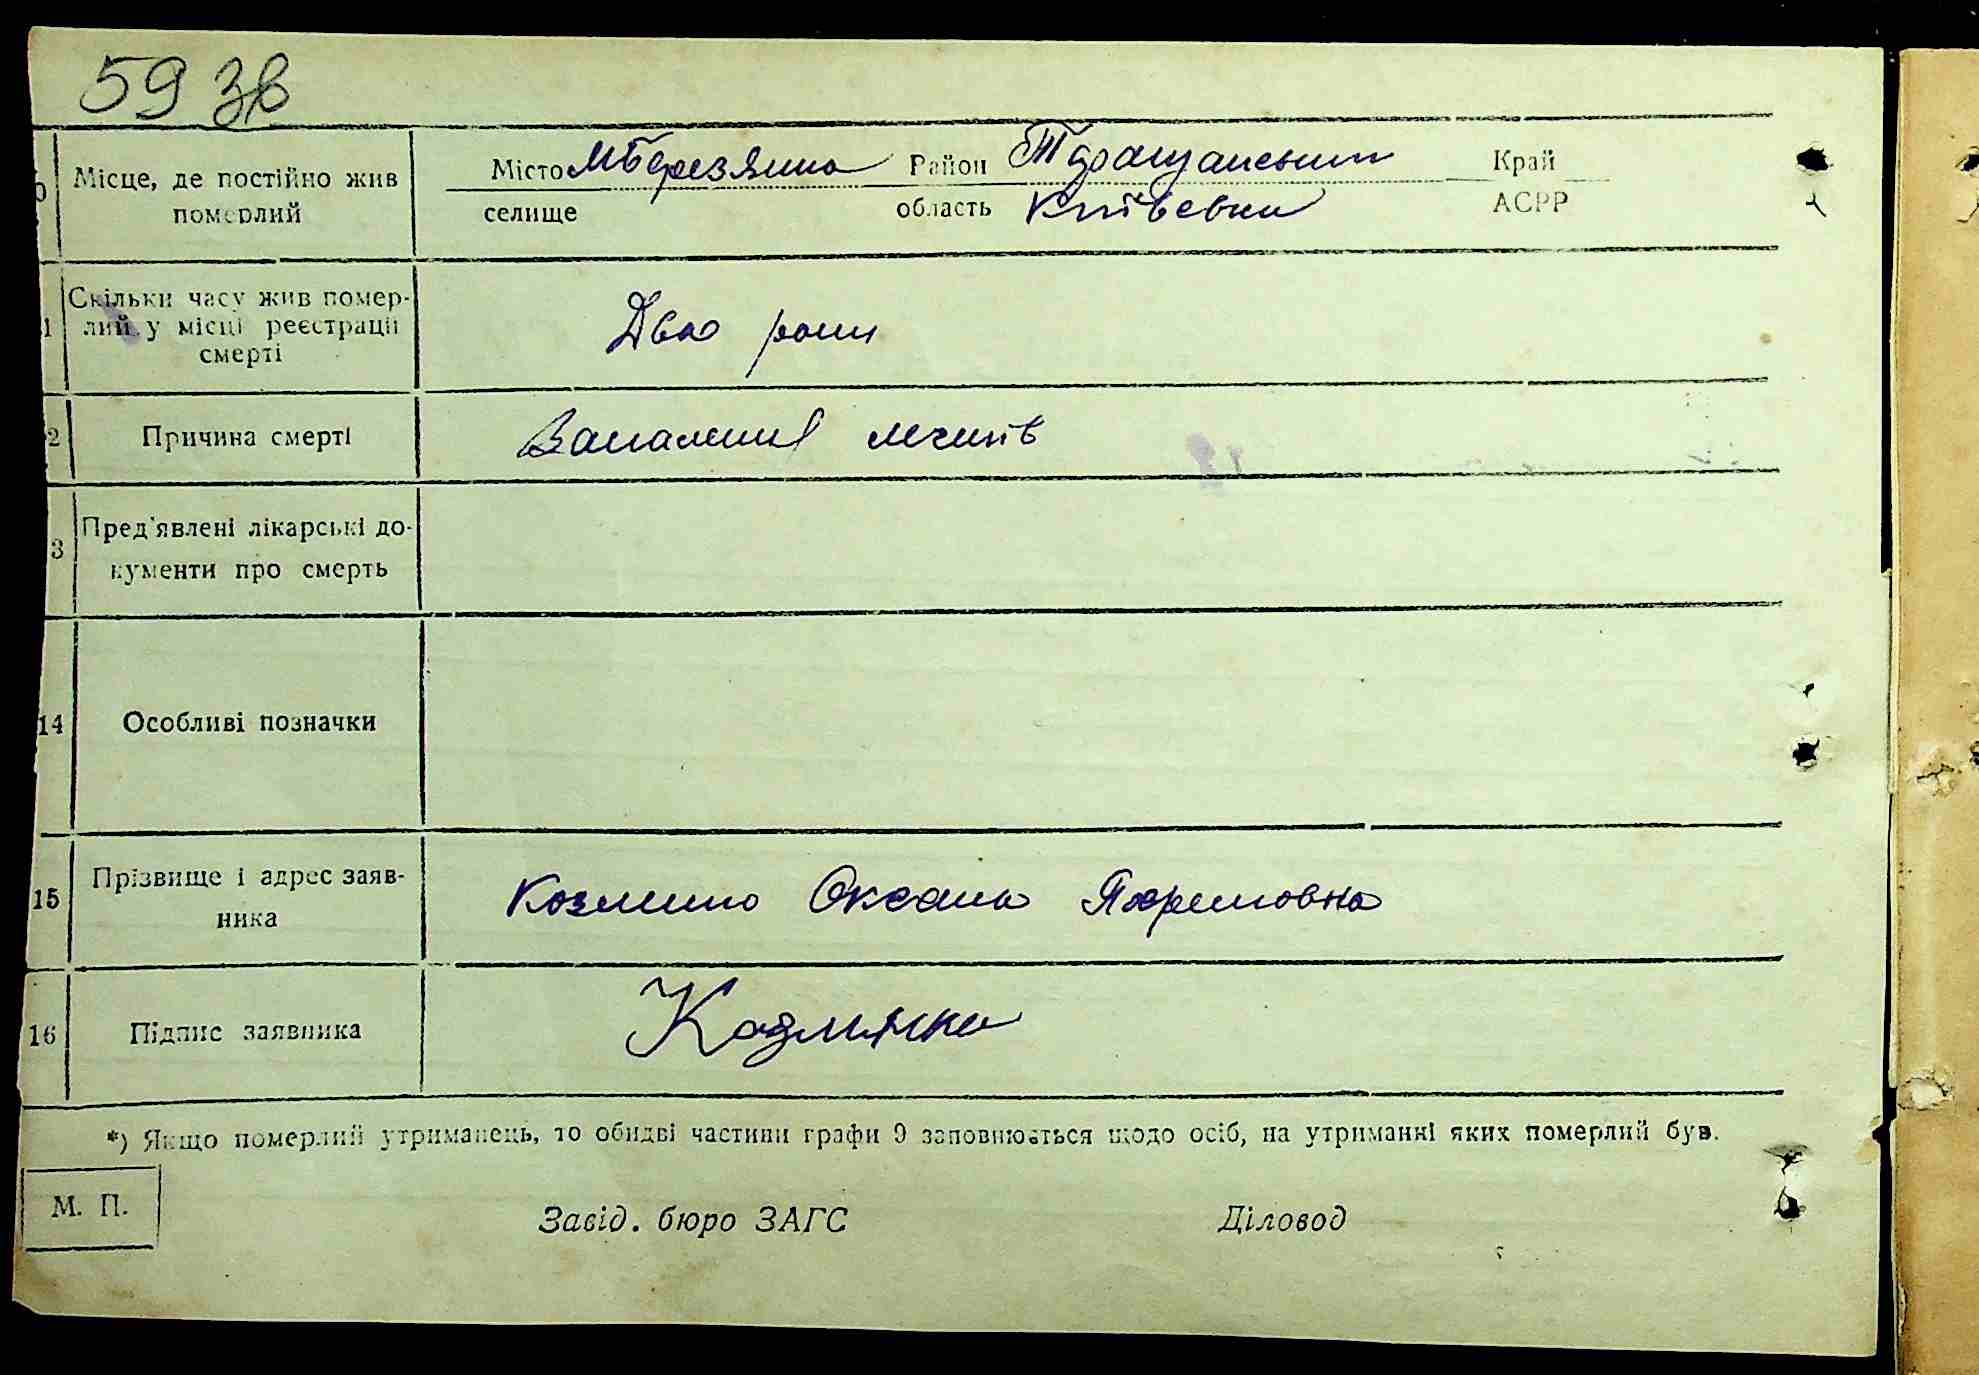 59 зв
Місце, де постійно жив
померлий
Місто М Березянка Район Таращанський Край
селище область Київська АСРР
Скільки часу жив помер-
лий у місці реєстрації
смерті
Два роки
2 Причина смерті Запалення легенів
3 Пред'явлені лікарські до-
кументи про смерть
14 Особливі позначки
15 Прізвище і адрес заяв-
ника
Оксана
16 Підпис заявника
*) Якщо померлий утриманець, то обидві частини графи 9 заповнюється щодо осіб, на утриманні яких померлий був.
М. П.
Завід. бюро ЗАГС Діловод